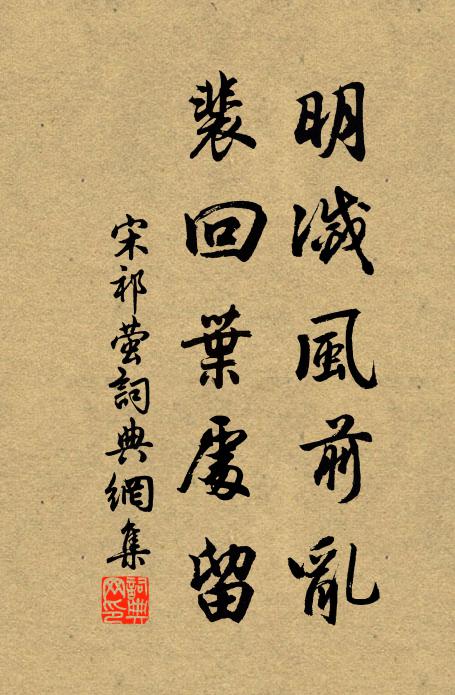 明滅風前亂
裴回葉處留
宋祁螢詞典網集
詞典網印